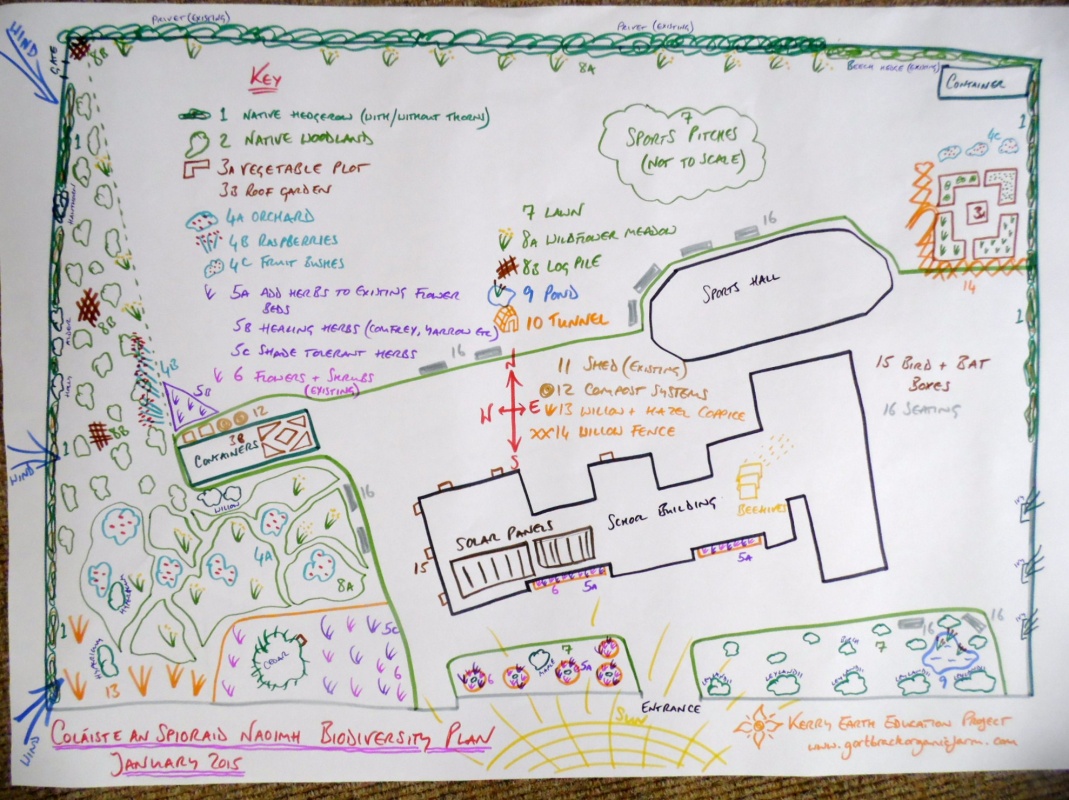 PRIVET (EXISTING)
PRIVET (EXISTING)
WIND
GATE
8B
8A
BEECH HEDGE (EXISTING)
CONTAINER
KEY
1 NATIVE HEDGEROW (WITH/WITHOUT THORNS)
2 NATIVE WOODLAND
3A VEGETABLE PLOT
3B ROOF GARDEN
4A ORCHARD
4B RASPBERRIES
4C FRUIT BUSHES
5A ADD HERBS TO EXISTING FLOWER
BEDS
5B HEALING HERBS (COMFREY, YARROW ETC)
5C SHADE TOLERANT HERBS
6 FLOWERS + SHRUBS
(EXISTING)
7 LAWN
8A WILDFLOWER MEADOW
8B LOG PILE
9 POND
10 TUNNEL
11 SHED (EXISTING)
12 COMPOST SYSTEMS
13 WILLOW + HAZEL COPPICE
XX14 WILLOW FENCE
15 BIRD + BAT
BOXES
16 SEATING
7
SPORTS PITCHES
(NOT TO SCALE)
1
4C
3A
14
1
16
16
SPORTS HALL
1
8B
ALDER
4B
5B
12
3B
CONTAINERS
8B
1
WIND
N
W E
S
WILLOW
16
4A
8A
15
SOLAR PANELS
SCHOOL BUILDING
BEEHIVES
6 5A
5A
1
13
CEDAR
5C
6
7
6
5A
7
16
16
LEYLANDII
LEYLANDII
9
ENTRANCE
SUN
WIND
COLÁISTE AN SPIORAID NAOIMH BIODIVERSITY PLAN
JANUARY 2015
KERRY EARTH EDUCATION PROJECT
www.gortbrackorganicfarm.com